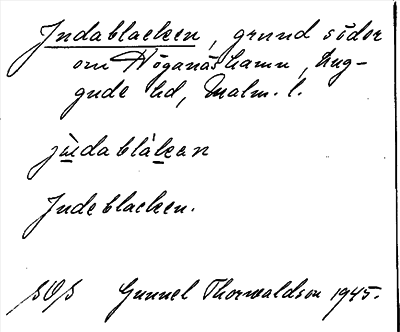 Judablacken, grund söder
om Höganäs hamn, Lug-
gude hd, Malm. l.
jùdablàkan
Judeblacken.
SOS Gunnel Thorwaldson 1945.